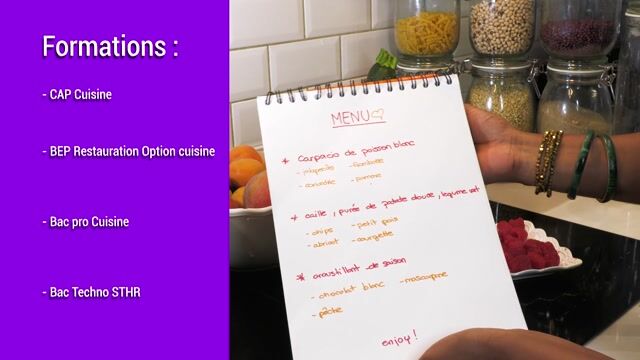 Formations :
- CAP Cuisine
- BEP Restauration Option cuisine
- Bac pro Cuisine
- Bac Techno STHR
MENU
* Carpacio de poisson blanc
- jalapeño - framboise
- coriandre - pomme
* caille, purée de patate douce, legume vert
- chips - petit pois
- abricot - courgette
* croustillant de saison
- chocolat blanc - mascarpone
- pêche
enjoy !